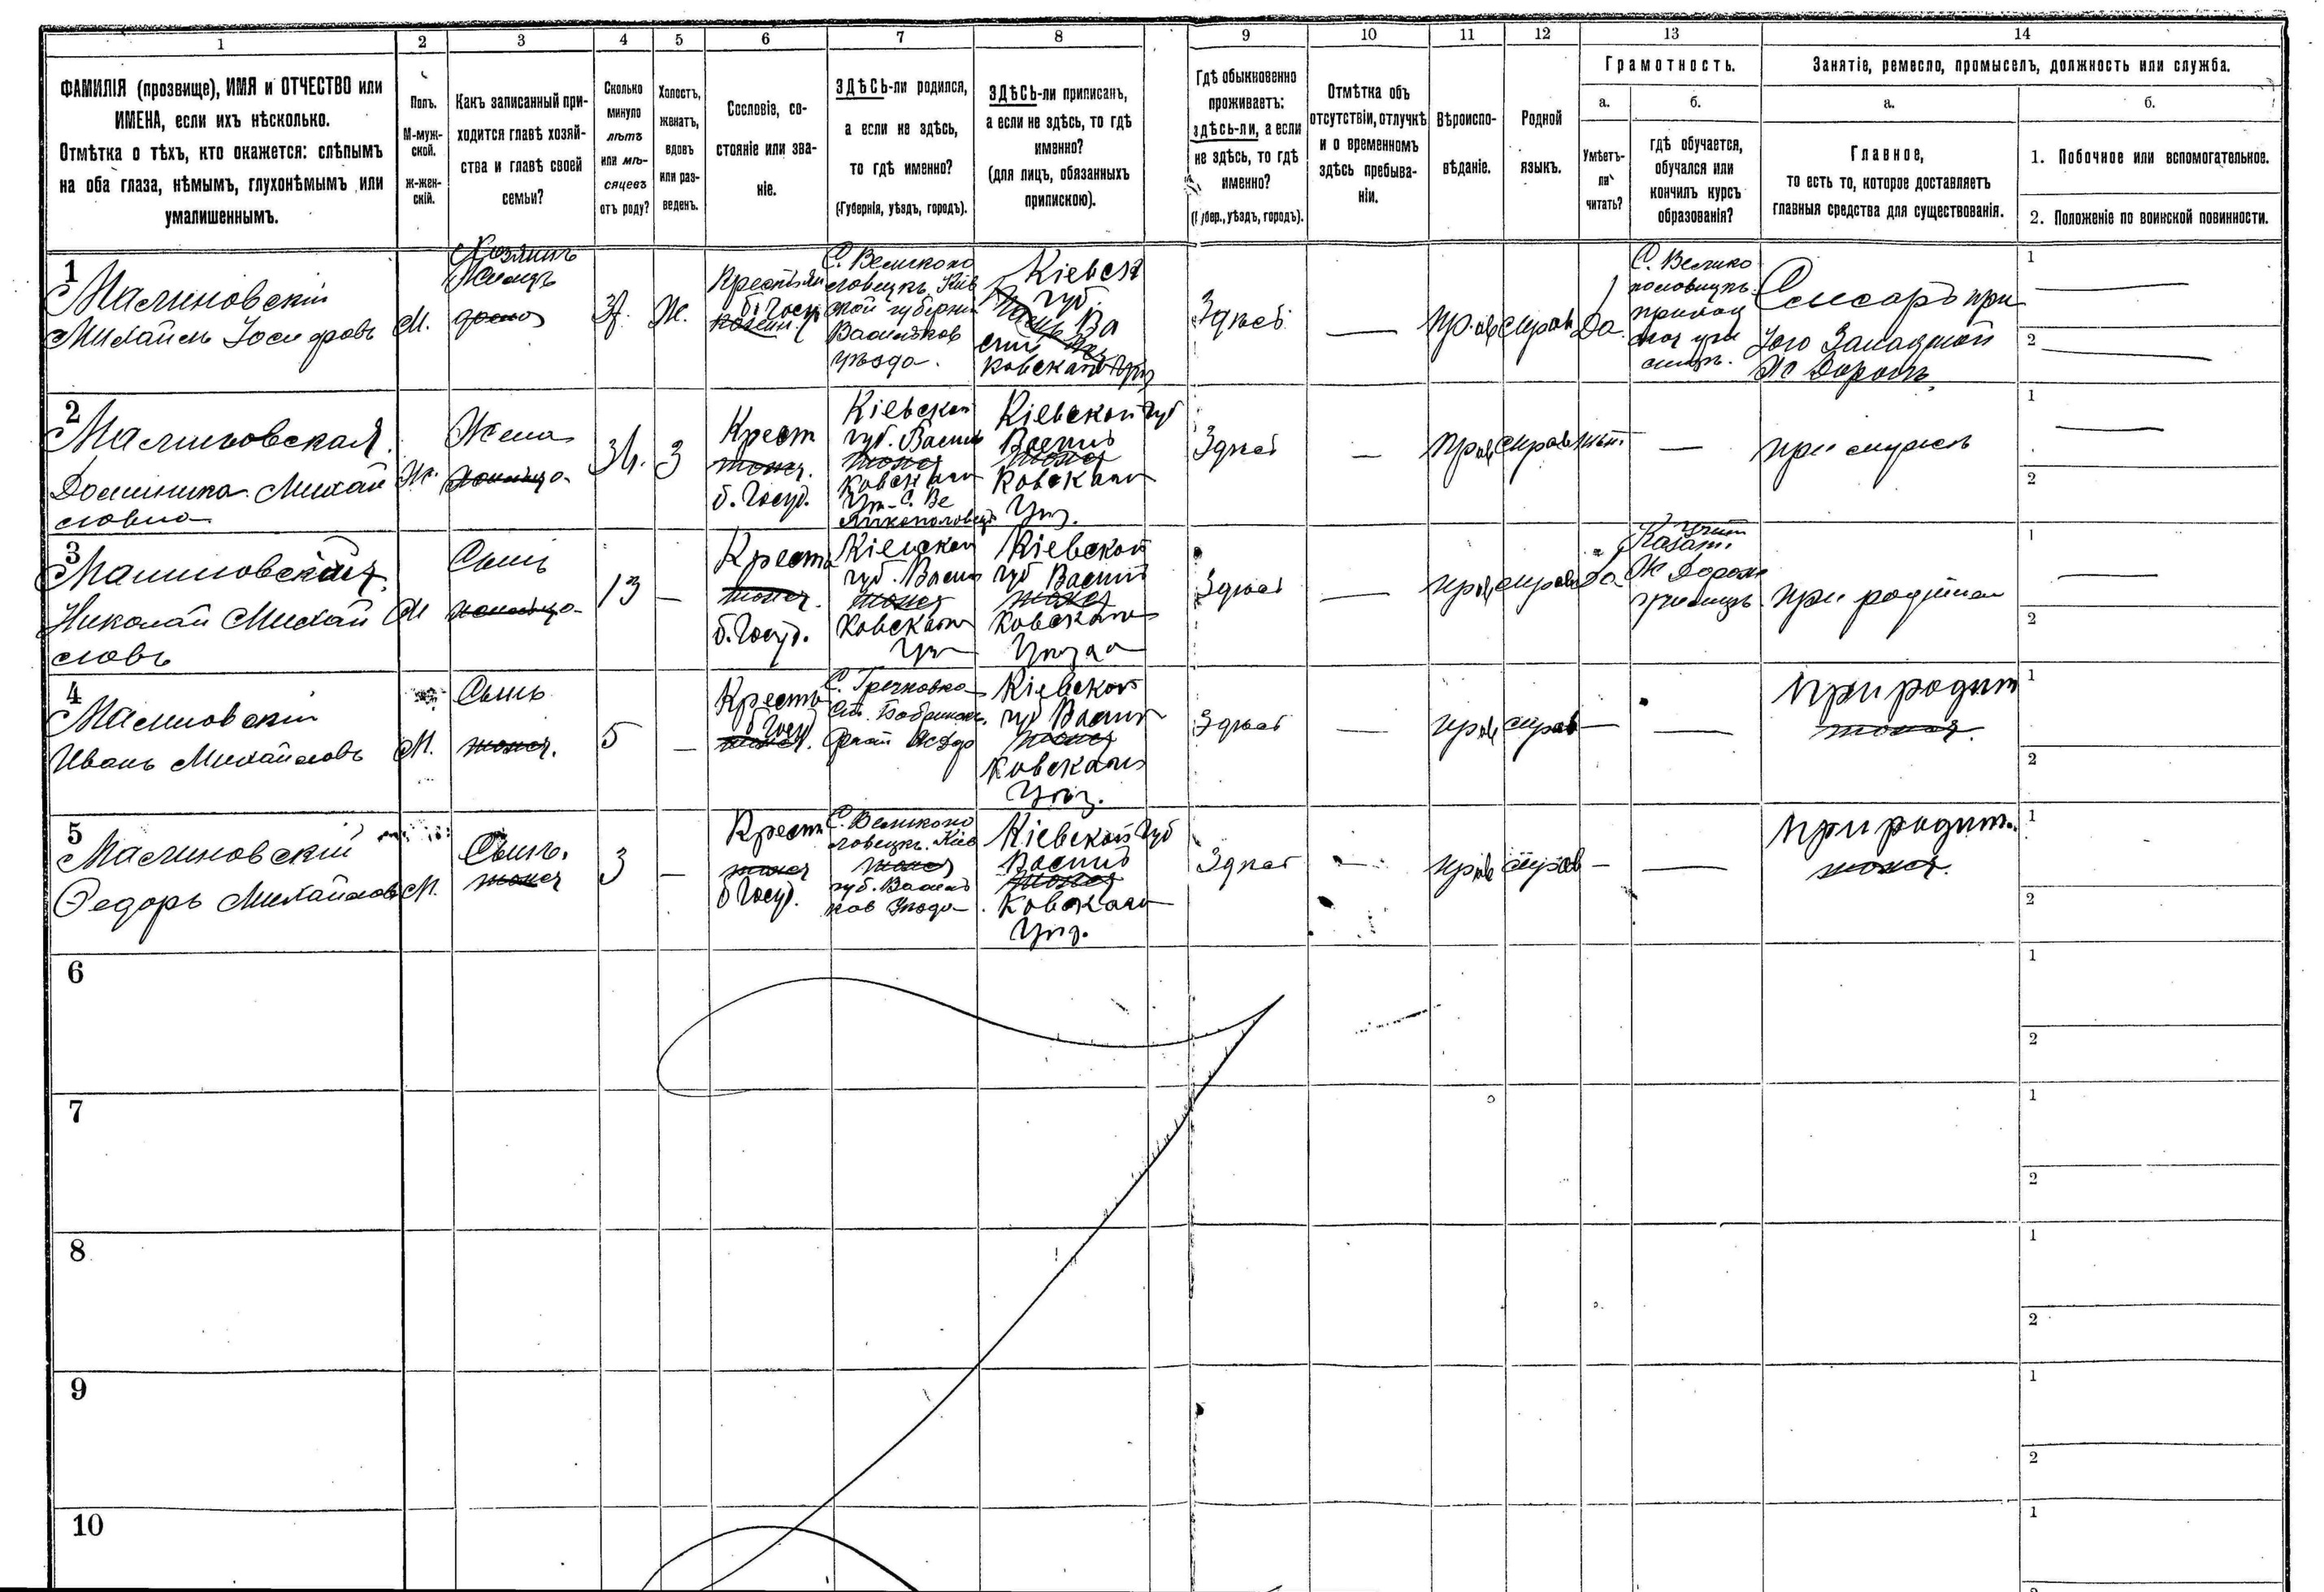 1 2 3 4 5 6 7 8 9 10 11 12 13 14
ФАМИЛІЯ (прозвище), ИМЯ и ОТЧЕСТВО или
ИМЕНА, если ихъ нѣсколько.
Отмѣтка о тѣхъ, кто окажется: слѣпымъ
на оба глаза, нѣмымъ, глухонѣмымъ или
умалишеннымъ.
Полъ.
М-муж-
ской.
Ж-жен-
скій.
Какъ записанный при-
ходится главѣ хозяй-
ства и главѣ своей
семьи?
Сколько
минуло
лѣтъ
или мѣ-
сяцевъ
отъ роду?
Холостъ,
женатъ,
вдовъ
или раз-
веденъ.
Сословіе, со-
стояніе или зва-
ніе.
ЗДѢСЬ-ли родился,
а если не здѣсь,
то гдѣ именно?
(Губернія, уѣздъ, городъ).
ЗДѢСЬ-ли приписанъ,
а если не здѣсь, то гдѣ
именно?
(для лицъ, обязанныхъ
припискою).
Гдѣ обыкновенно
проживаетъ:
здѣсь-ли, а если
не здѣсь, то гдѣ
именно?
(Губер., уѣздъ, городъ).
Отмѣтка объ
отсутствіи, отлучкѣ
и о временномъ
здѣсь пребыва-
ніи.
Вѣроиспо-
вѣданіе.
Родной
языкъ.
Грамотность.
а.
Умѣетъ-
ли
читать?
б.
гдѣ обучается,
обучался или
кончилъ курсъ
образованія?
Занятіе, ремесло, промыселъ, должность или служба.
а.
Главное,
то есть то, которое доставляетъ
главныя средства для существованія.
б.
1. Побочное или вспомогательное.
2. Положеніе по воинской повинности.
1
Малиновскій
Михаилъ Іосифовъ
М.
Хозяинъ
Ж.
Крестьян
б. Госуд
С. Великопо
ловецкъ Кіев
ской губерніи
Васильков
уѣзда.
Кіевск
губ.
Здѣсь
—
Прав
Да
С. Велико
половецк.
Слесарь при
Юго Западной
Ж Дорогѣ
1
2
2
Малиновская
Домникія Михай
ловна
Ж.
Жена
34.
З
Крест
тоже.
б. Госуд.
Кіевской
губ. Василь
тоже
ковскаго
Уѣ. С. Ве
ликополовец
Кіевской губ
Василь
тоже
ковскаго
Уѣз.
Здѣсь
—
Прав
нѣт.
—
при мужѣ
1
2
3
Малиновскій
Николай Михай
ловъ
М
Сынъ
13
—
Крест
тоже.
б. Госуд.
Кіевской
губ. Василь
тоже
ковскаго
Уѣ
Кіевской
губ Василь
тоже
ковскаго
Уѣзда
Здѣсь
—
Прав
Да
Казат.
Ж Дорож
училищъ
при родителях
1
2
4
Малиновскій
Иванъ Михайловъ
М.
Сынъ
тоже.
5
—
Кресть
б Госуд
тоже.
С. Гречковка
Ст. Бобринск.
Кіевской
губ Василь
тоже
ковскаго
Уѣз.
Здѣсь
—
Прав
—
—
При родит
тоже.
1
2
5
Малиновскій
Ѳедоръ Михайловъ
М.
Сынъ.
тоже
3
—
Крест
тоже
б Госуд.
С. Великопо
ловецк. Кіев
тоже
губ. Василь
ков Уѣзда
Кіевской губ
Василь
тоже
ковскаго
Уѣз.
Здѣсь
—
Прав
—
—
При родит.
тоже.
1
2
6
1
2
7
1
2
8
1
2
9
1
2
10
1